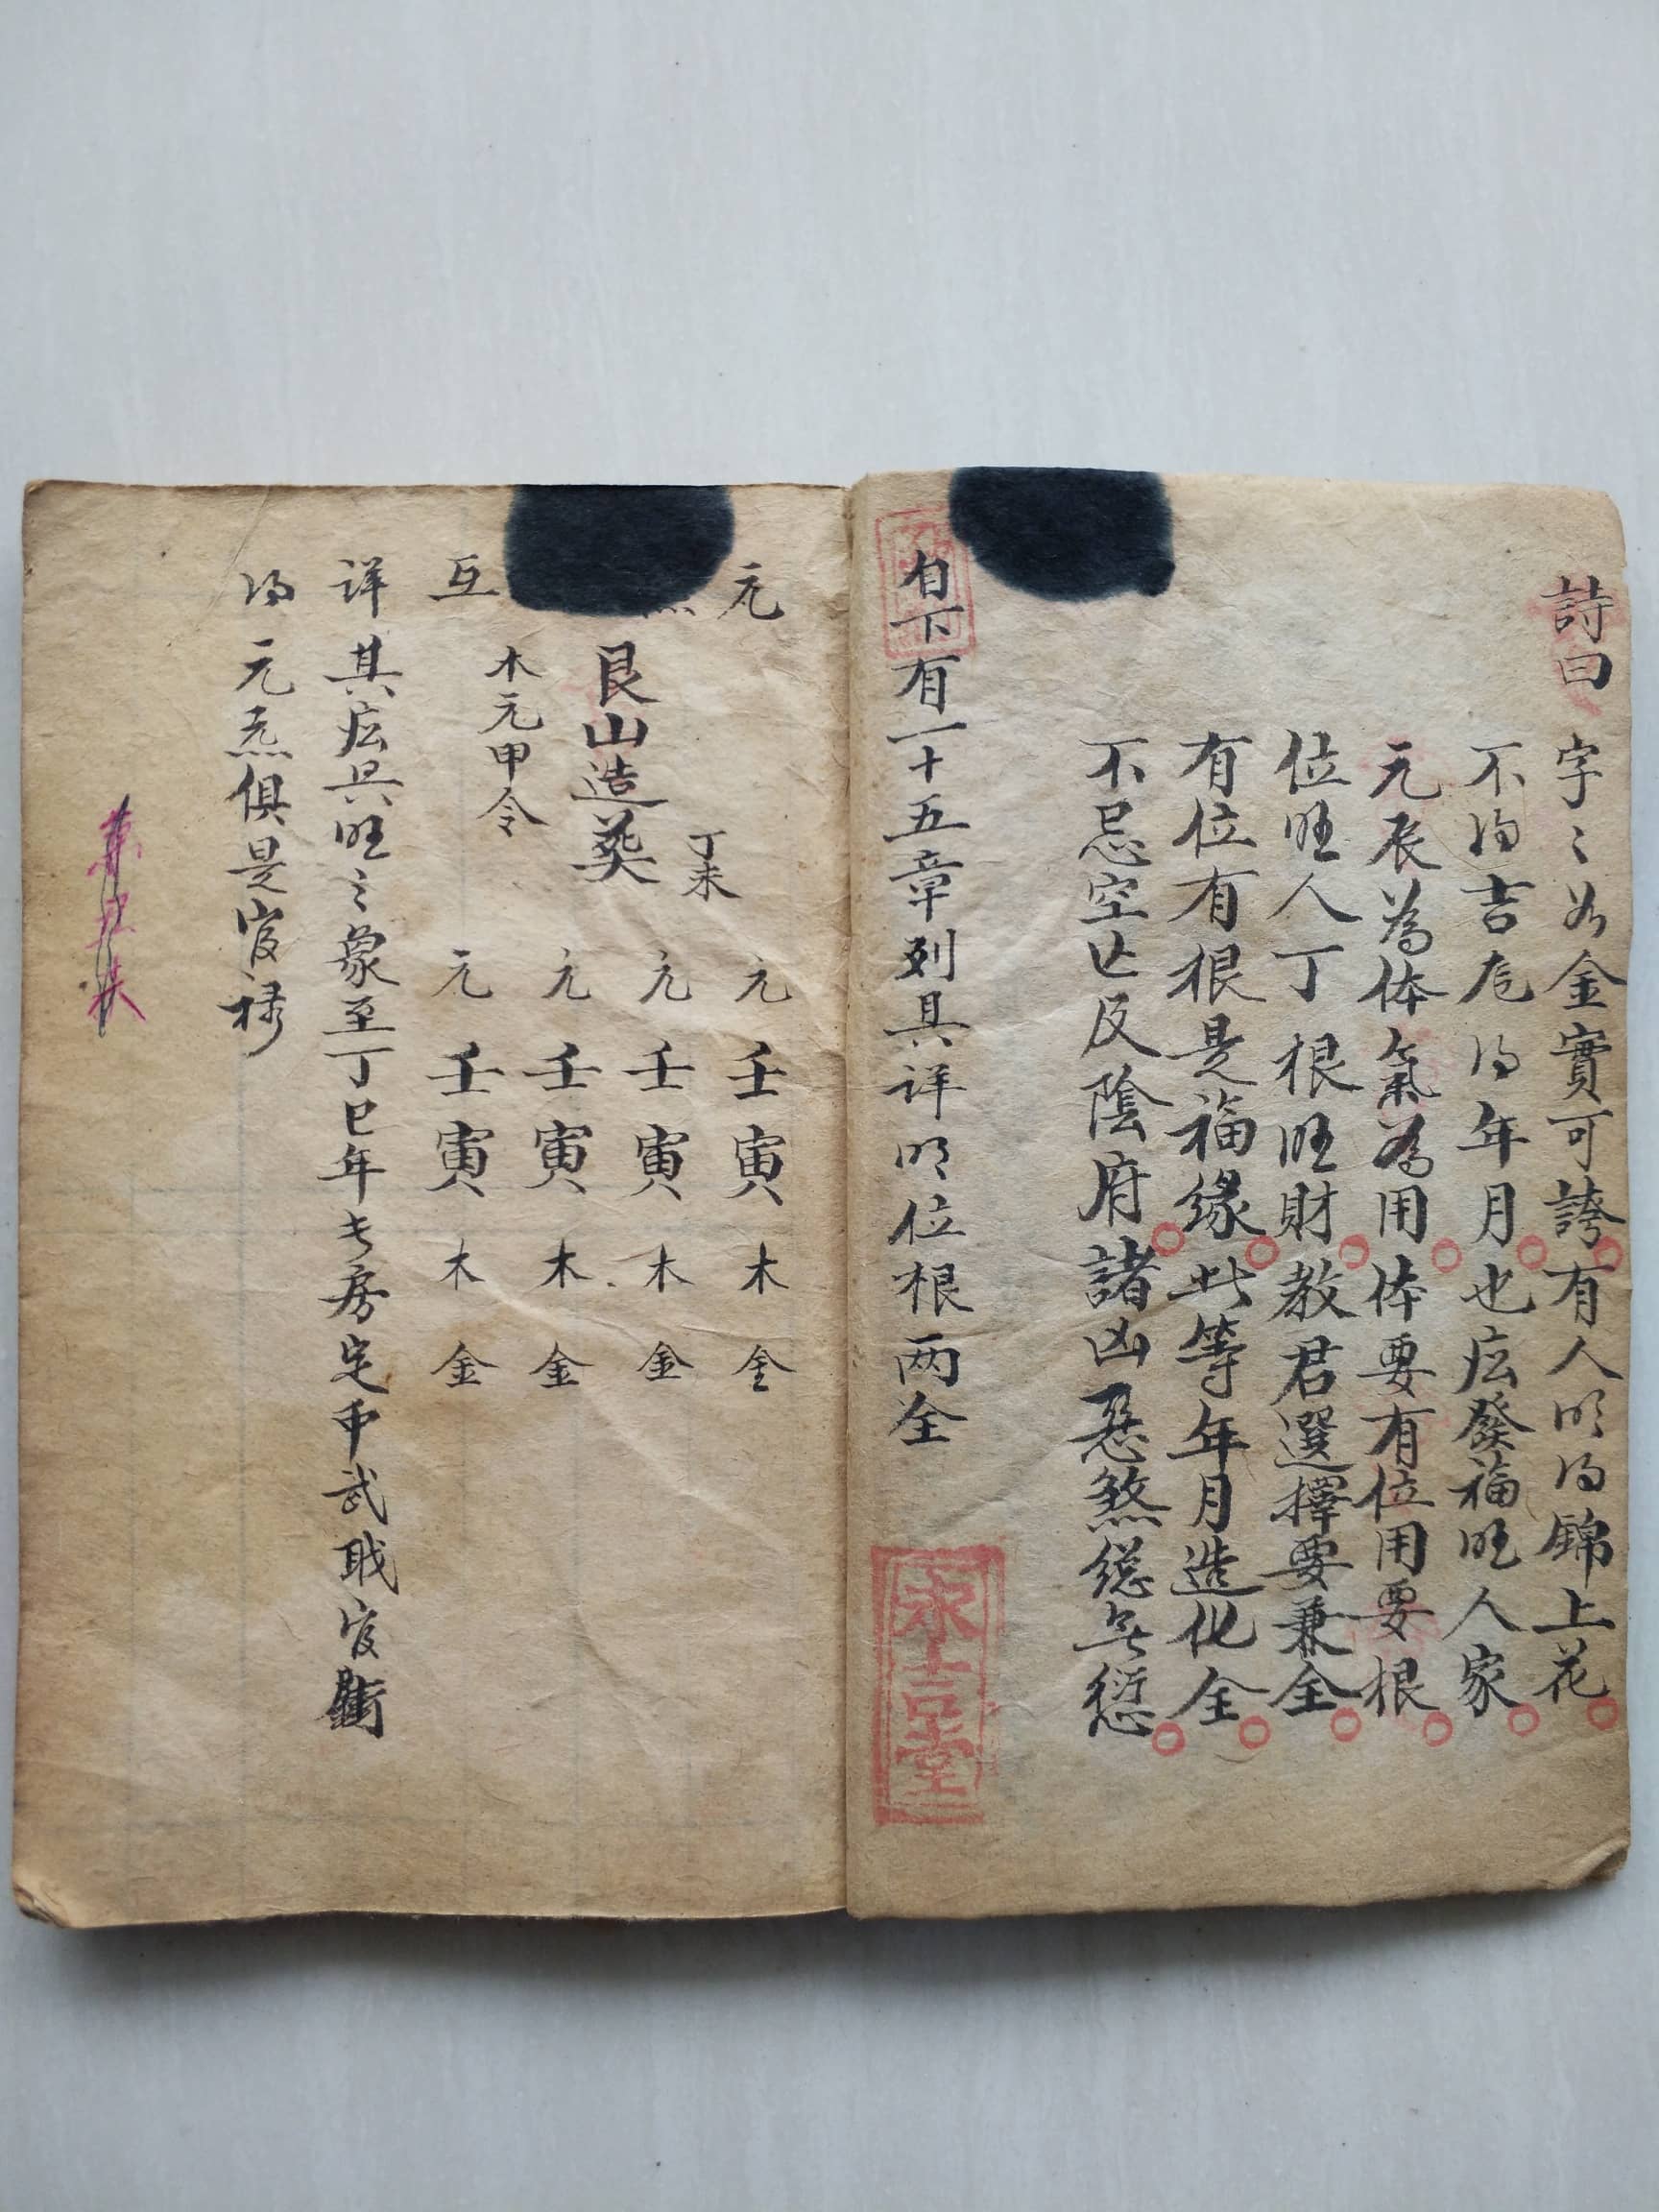 詩曰
字〻如金實可誇有人明得錦上花
不得吉 得年月也 發福旺人家
元辰為体氣為用体要有位用要根
位旺人丁根旺財教君選擇要兼全
有位有根是福緣此等年月造化全
不忌空亡及陰府諸凶惡煞總無愆
自下有一十五章列具詳明位根两全
永吉堂
元
丁未
艮山造葵
木元甲令
互
元壬寅木金
元壬寅木金
元壬寅木金
元壬寅木金
詳其 旺之象至丁巳年长房 中武职官
得元炁俱是官禄